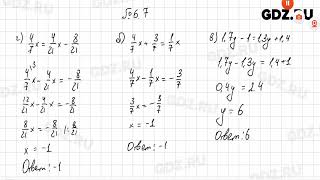 № 6.7
GDZ.RU
а) 4/7 x = 4/21 x - 8/21
4/7 x - 4/21 x = - 8/21
12/21 x - 4/21 x = - 8/21
8/21 x = - 8/21 | : 8/21
x = -1
Ответ: -1
б) 4/7 x + 3/7 = 1/7 x
4/7 x - 1/7 x = - 3/7
3/7 x = - 3/7
x = -1
Ответ: -1
в) 1,7y - 1 = 1,3y + 1,4
1,7y - 1,3y = 1,4 + 1
0,4y = 2,4
y = 6
Ответ: 6